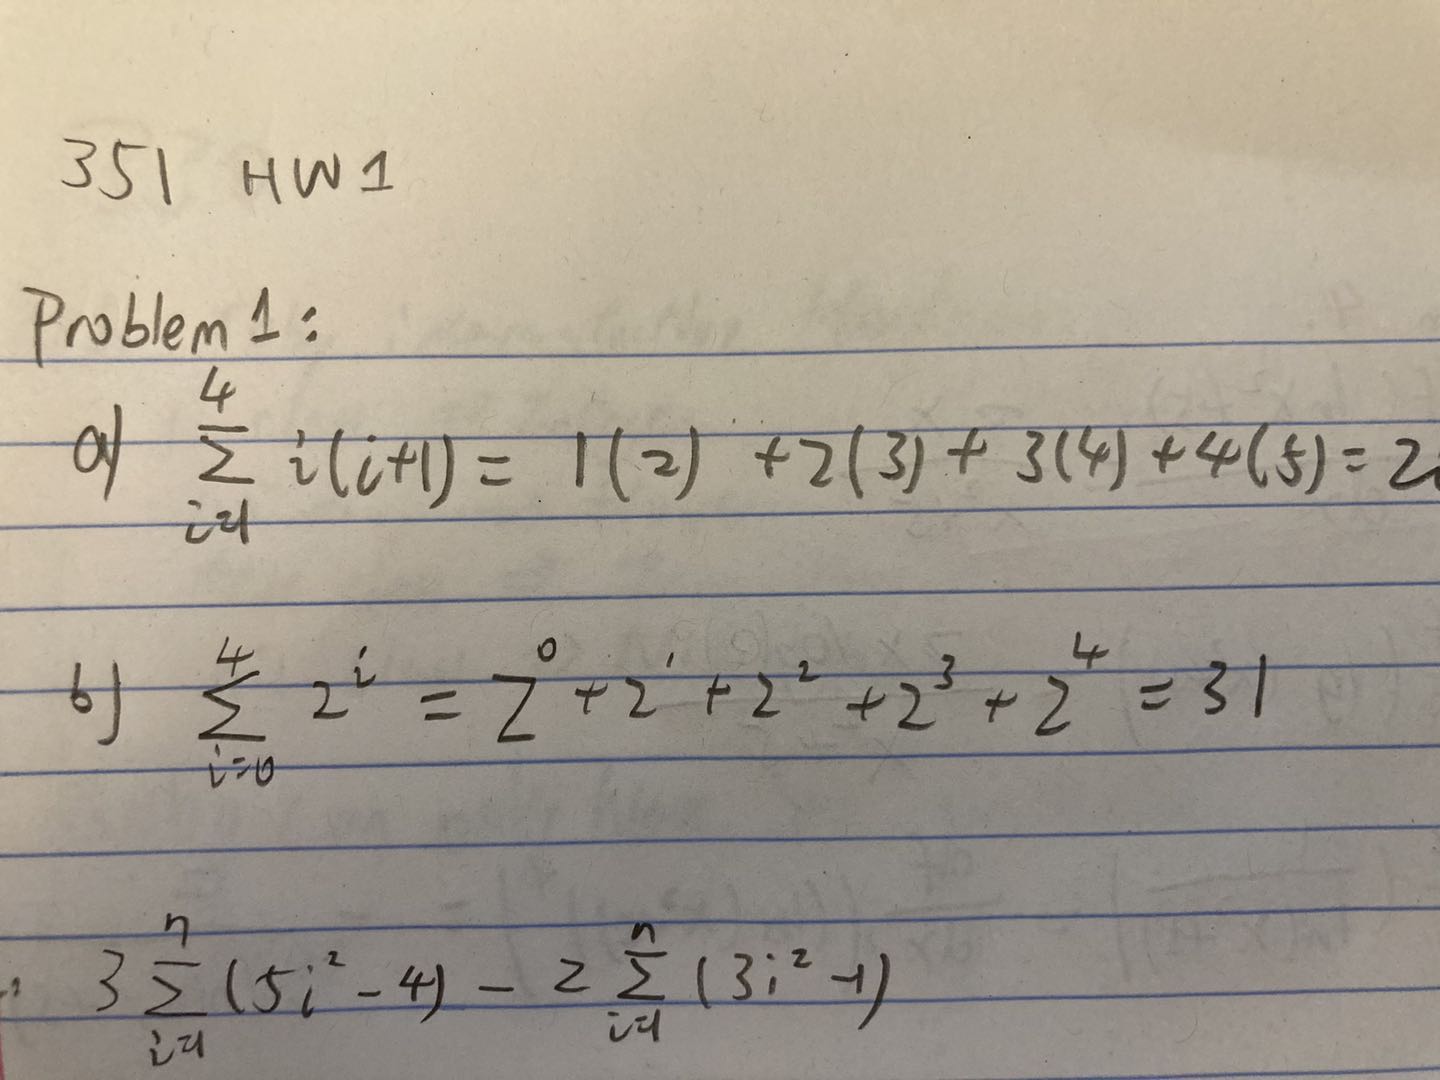 351 HW1
Problem 1:
a) \sum_{i=1}^{4} i(i+1) = 1(2) + 2(3) + 3(4) + 4(5) = 2
b) \sum_{i=0}^{4} 2^i = 2^0 + 2^1 + 2^2 + 2^3 + 2^4 = 31
3 \sum_{i=1}^{n} (5i^2 - 4) - 2 \sum_{i=1}^{n} (3i^2 - 1)